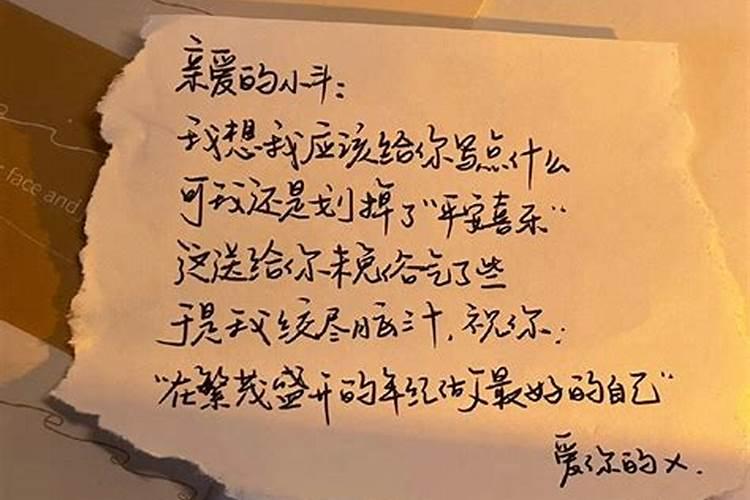 亲爱的小斗：
我想我应该给你写点什么
可我还是划掉了“平安喜乐”
这送给你未免俗气了些
于是我绞尽脑汁，祝你：
“在繁茂盛开的年纪做最好的自己”
爱你的X.
face and